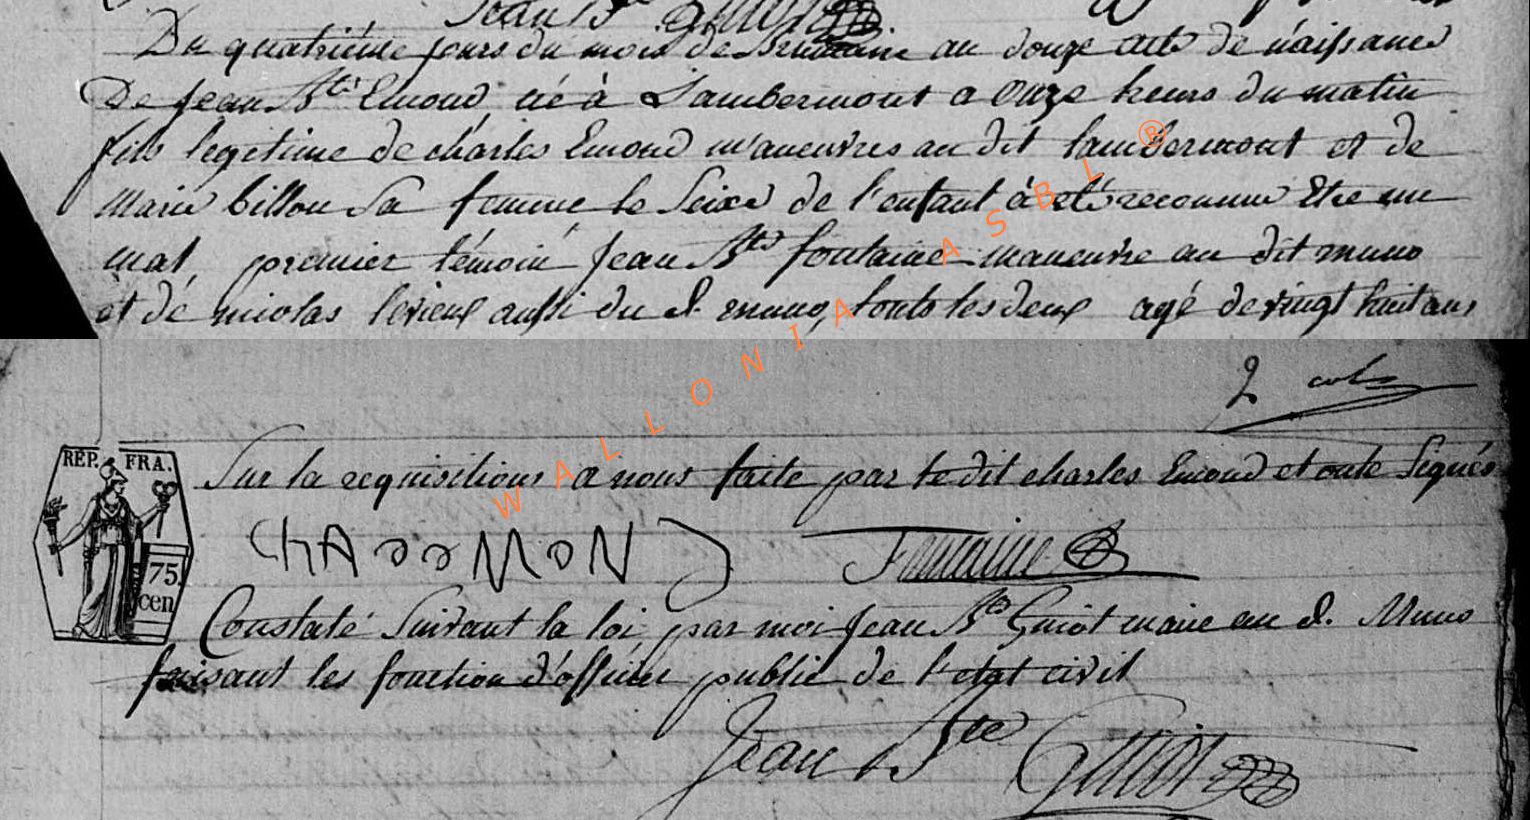 Jean Bte Guiot
Du quatriéme jours du mois de Brumaire an douze acte de náissance
De Jean Bte Emond, né à Lambermont a onze heurs du matin
fils legitime de charles Emond maneuvres au dit lambermont et de
Marie billon Sa femme le Seixe de l'enfant à eté reconnu Etre un
mal, premier témoin Jean Bte fontaine maneuvre au dit muno
et dé nicolas levieux aussi du d. muno, touts les deux agé de vingt huit ans
2
Sur la requisitions a nous faite par le dit charles Emond et onte Signés
REP. FRA.
75
cen
Fontaine
Constaté Suivant la loi par moi Jean Bte Guiot maire au d. Muno
faisant les fonction d'officier public de l'etat civil
Jean Bte Guiot
WALLONIA ASBL ®